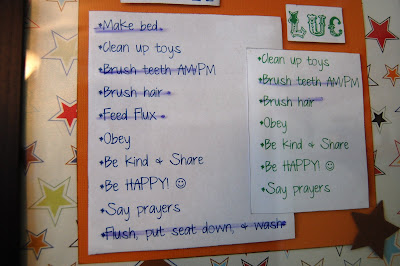 LUC
*Make bed
*Clean up toys
*Brush teeth AM/PM
*Brush hair
*Feed Flux
*Obey
*Be Kind & Share
*Be HAPPY! ☺
*Say prayers
*Flush, put seat down, & wash
*Clean up toys
*Brush teeth AM/PM
*Brush hair
*Obey
*Be Kind & Share
*Be HAPPY! ☺
*Say prayers